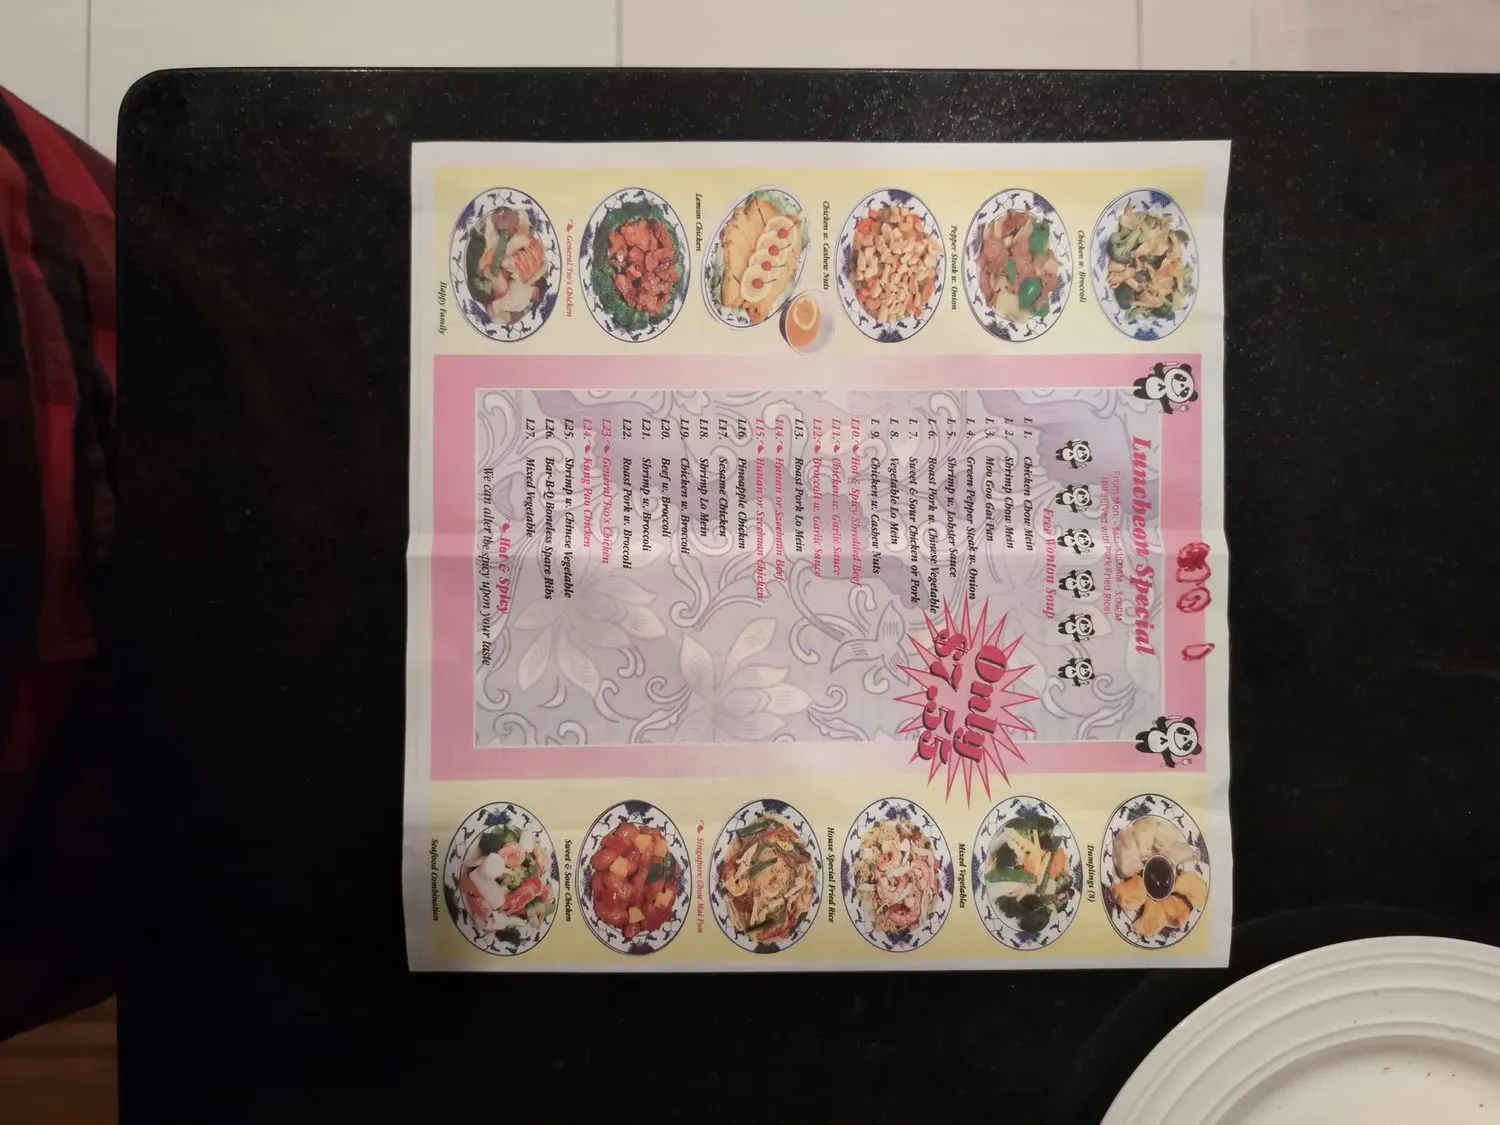 Luncheon Special
From Mon. - Sat. 11:00AM - 3:00PM
(all served with Pork Fried Rice)
Free Wonton Soup
L 1. Chicken Chow Mein
L 2. Shrimp Chow Mein
L 3. Moo Goo Gai Pan
L 4. Green Pepper Steak w. Onion
L 5. Shrimp w. Lobster Sauce
L 6. Roast Pork w. Chinese Vegetable
L 7. Sweet & Sour Chicken or Pork
L 8. Vegetable Lo Mein
L 9. Chicken w. Cashew Nuts
L10. Hot & Spicy Shredded Beef
L11. Chicken w. Garlic Sauce
L12. Broccoli w. Garlic Sauce
L13. Roast Pork Lo Mein
L14. Hunan or Szechuan Beef
L15. Hunan or Szechuan Chicken
L16. Pineapple Chicken
L17. Sesame Chicken
L18. Shrimp Lo Mein
L19. Chicken w. Broccoli
L20. Beef w. Broccoli
L21. Shrimp w. Broccoli
L22. Roast Pork w. Broccoli
L23. General Tso's Chicken
L24. Kung Pao Chicken
L25. Shrimp w. Chinese Vegetable
L26. Bar-B-Q Boneless Spare Ribs
L27. Mixed Vegetable
Hot & Spicy
We can alter the spicy upon your taste
Only
$7.55
Chicken w. Broccoli
Pepper Steak w. Onion
Chicken w. Cashew Nuts
Lemon Chicken
General Tso's Chicken
Happy Family
Dumplings (8)
Mixed Vegetables
House Special Fried Rice
Singapore Chow Mai Fun
Sweet & Sour Chicken
Seafood Combination